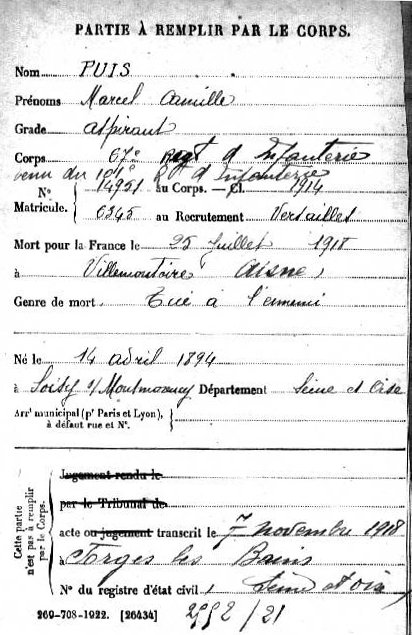 PARTIE À REMPLIR PAR LE CORPS.
Nom PUIS
Prénoms Marcel Camille
Grade aspirant
Corps 67e Regt d'Infanterie
venu du 101e R d'Infanterie
N° 14951 au Corps. — Cl. 1914
Matricule. 6345 au Recrutement Versailles
Mort pour la France le 25 juillet 1918
à Villemontoire Aisne
Genre de mort Tué à l'ennemi
Né le 14 avril 1894
à Soisy s/ Montmorency Département Seine et Oise
Arrt municipal (pr Paris et Lyon),
à défaut rue et N°.
Cette partie
n'est pas à remplir
par le Corps.
Jugement rendu le
par le Tribunal de
acte ou jugement transcrit le 7 novembre 1918
à Forges les Bains
N° du registre d'état civil Seine et Oise
269-708-1922. [26434]